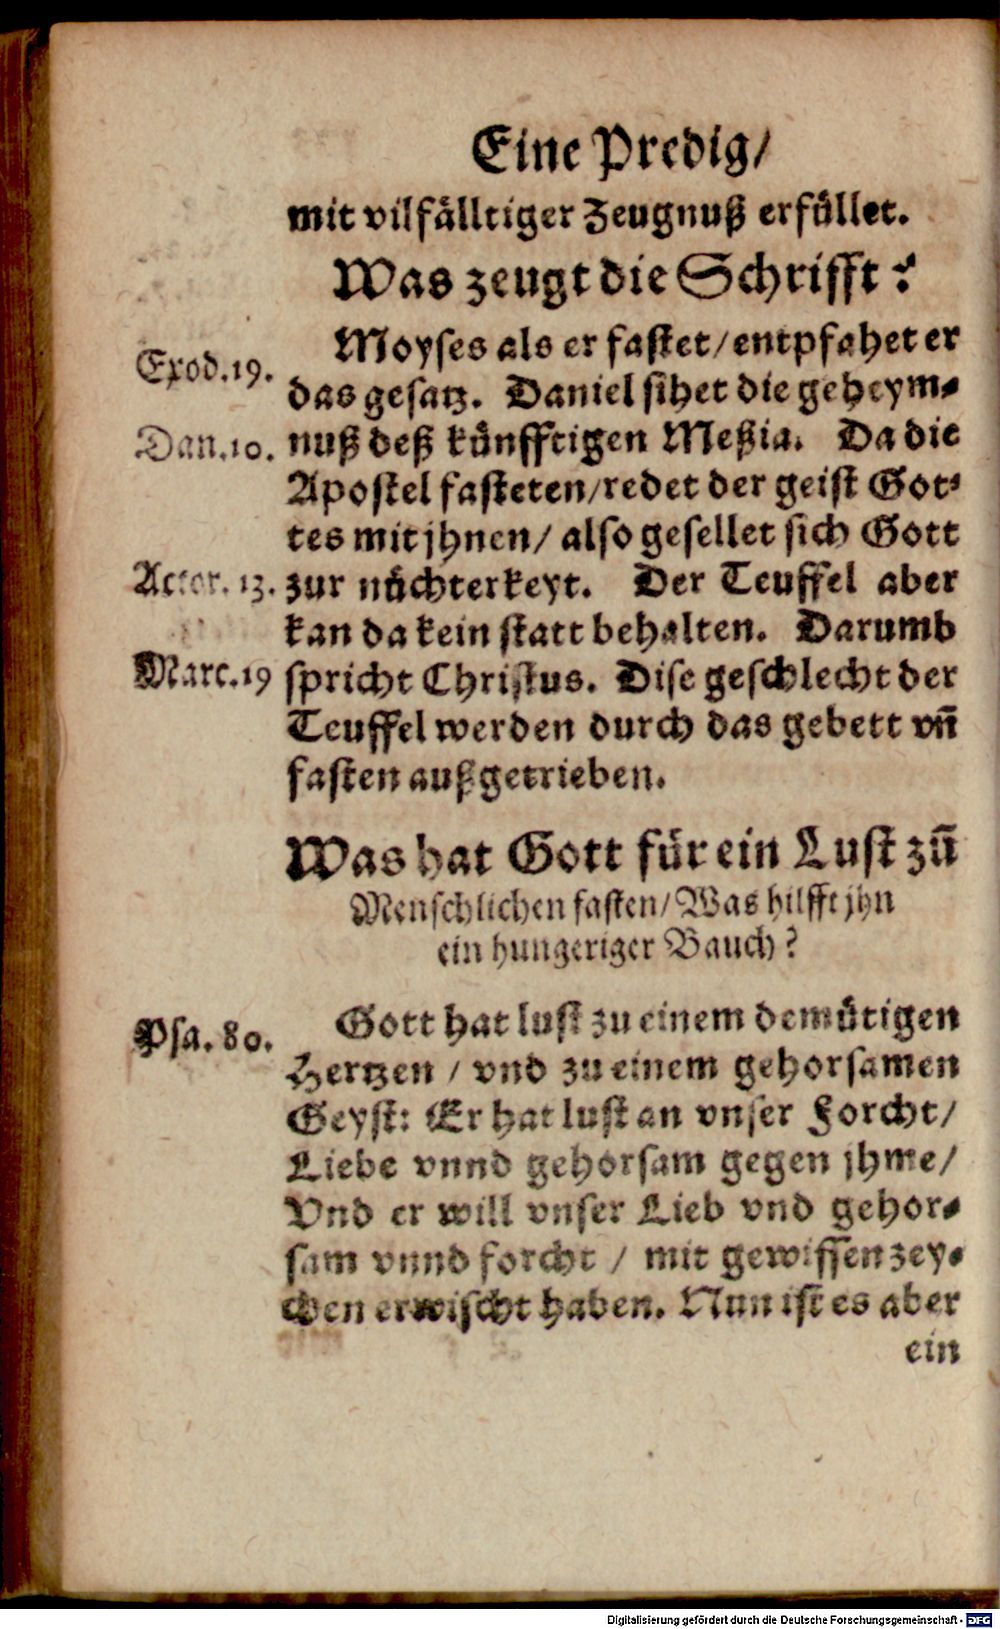 Eine Predig/
mit vilfälltiger Zeugnuß erfüllet.
Was zeugt die Schrifft?
Moyses als er fastet/entpfahet er
Exod.19.
das gesatz. Daniel sihet die geheym-
Dan.10.
nuß deß künfftigen Meßia. Da die
Apostel fasteten/redet der geist Got-
tes mit jhnen/ also gesellet sich Gott
Actor. 13.
zur nüchterkeyt. Der Teuffel aber
kan da kein statt behalten. Darumb
Marc.19
spricht Christus. Dise geschlecht der
Teuffel werden durch das gebett vñ
fasten außgetrieben.
Was hat Gott für ein Lust zů
Menschlichen fasten/Was hilfft jhn
ein hungeriger Bauch?
Gott hat lust zu einem demütigen
Psa. 80.
Hertzen / vnd zu einem gehorsamen
Geyst: Er hat lust an vnser Forcht/
Liebe vnnd gehorsam gegen jhme/
Vnd er will vnser Lieb vnd gehor-
sam vnnd forcht / mit gewissen zey-
chen erwischt haben. Nun ist es aber
ein
Digitalisierung gefördert durch die Deutsche Forschungsgemeinschaft - DFG